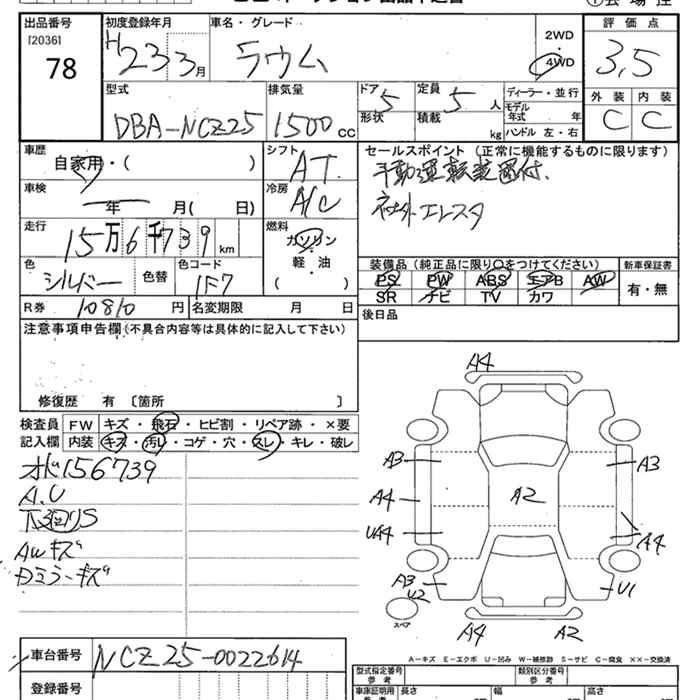 出品番号 初度登録年月 車名・グレード 評価点
[2036]
78
H23 3月 ラウム
2WD
・
4WD
3.5
型式 排気量 ドア 定員 ディーラー・並行 外装 内装
DBA-NCZ25 1500cc 5 5人
形状 積載 kg モデル年式 年
ハンドル 左・右
C C
車歴 自家用・( )
シフト AT
セールスポイント (正常に機能するものに限ります)
手動運転装置付、
社外エレスタ
車検 年 月( 日)
冷房 A/C
走行 15万6千739km
燃料 ガソリン
軽・油
( )
色 シルバー 色替 色コード 1F7
装備品(純正品に限り○をつけてください) 新車保証書
PS PW ABS エアB AW
SR ナビ TV カワ
有・無
R券 10810円 名変期限 月 日
後日品
注意事項申告欄(不具合内容等は具体的に記入して下さい)
修復歴 有 〔箇所 〕
検査員 FW キズ・飛石・ヒビ割・リペア跡・×要
記入欄 内装 キズ・汚レ・コゲ・穴・スレ・キレ・破レ
オド156739
A.U
下廻りS
AWキズ
Dミラーキズ
A4
A3 A3
A4 A2
UA4 A4
A3
U2 U1
スペア
A4 A2
A-キズ E-エクボ U-凹み W-補修跡 S-サビ C-腐食 ××-交換済
車台番号 NCZ25-0022614
型式指定番号 参考 類別区分番号 参考
登録番号
車庫証明用 参考 長さ 幅 高さ